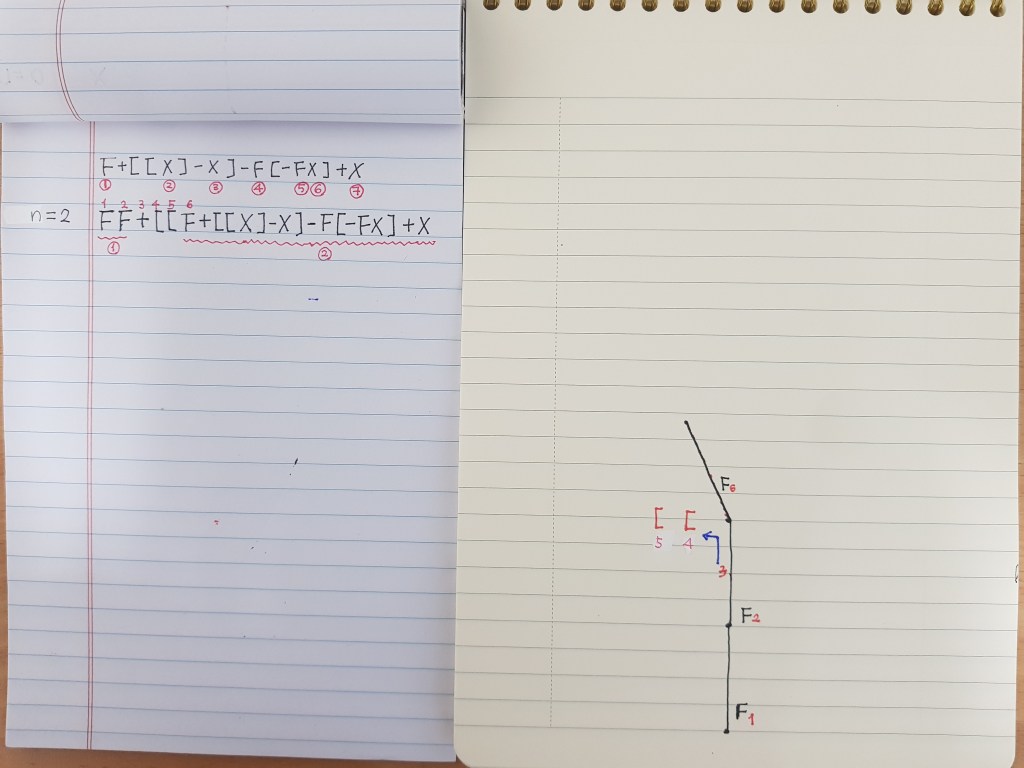 F+[[X]-X]-F[-FX]+X
① ② ③ ④ ⑤ ⑥ ⑦
1 2 3 4 5 6
n=2 FF+[[F+[[X]-X]-F[-FX]+X
① ②
F6
[ [
5 4
3
F2
F1